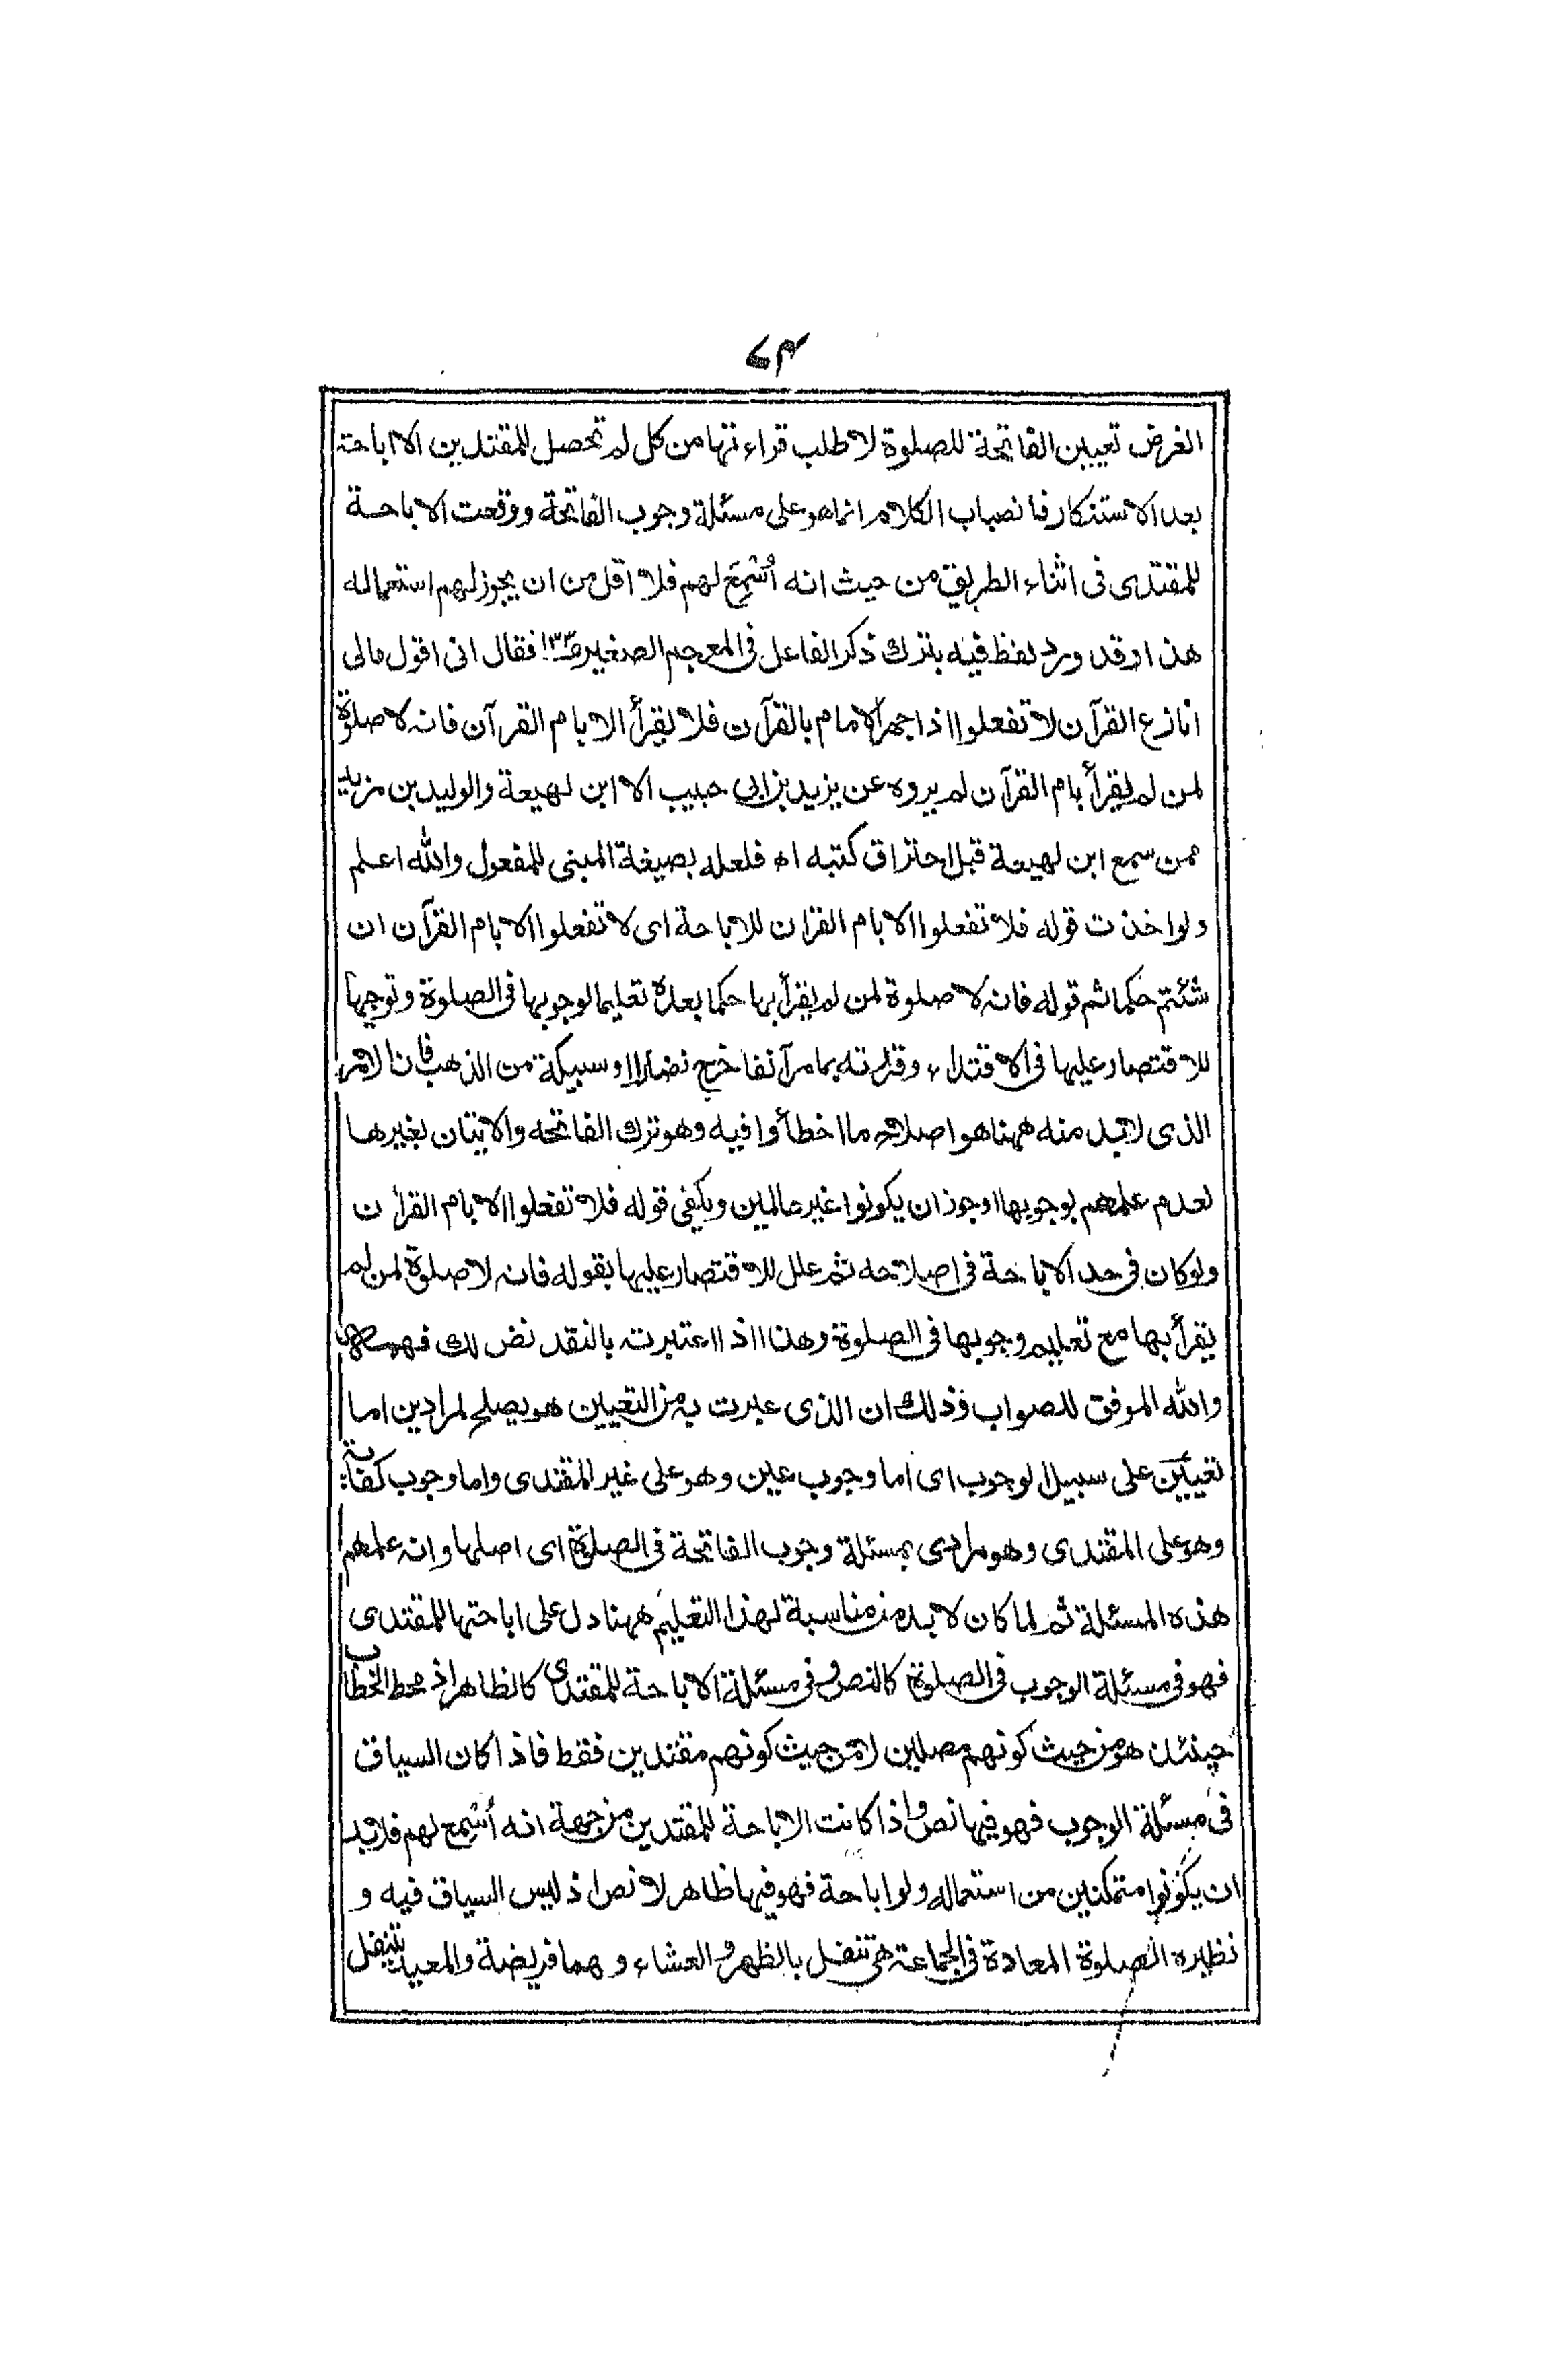 ۷۴
الغرض تعيين الفاتحة للصلوة لا طلب قراءتها من كل لم تحصل للمقتدين الا اباحة
بعد الاستنكار فانصباب الكلام انما هو على مسئلة وجوب الفاتحة ووقعت الاباحة
للمقتدى فى اثناء الطريق من حيث انه أُسْمِعَ لهم فلا اقل من ان يجوز لهم استعماله
هذا وقد ورد لفظ فيه بترك ذكر الفاعل فى المعجم الصغير ص١٣٣ فقال انى اقول مالى
انازع القرآن لا تفعلوا اذا جهر الامام بالقرآن فلا يقرأ الا بام القرآن فانه لا صلوة
لمن لم يقرأ بام القرآن لم يروه عن يزيد بن ابى حبيب الا ابن لهيعة والوليد بن مزيد
ممن سمع ابن لهيعة قبل احتراق كتبه اه فلعله بصيغة المبنى للمفعول والله اعلم
ولو اخذت قوله فلا تفعلوا الا بام القرآن للاباحة اى لا تفعلوا الا بام القرآن ان
شئتم حكما ثم قوله فانه لا صلوة لمن لم يقرأ بها حكما بعده تعليما لوجوبها فى الصلوة وتوجيها
للاقتصار عليها فى الاقتداء وقررته بما مر آنفا خرج نضارا او سبيكة من الذهب فان الامر
الذى لابد منه ههنا هو اصلاح ما اخطأوا فيه وهو ترك الفاتحه والاتيان بغيرها
لعدم علمهم بوجوبها او جوز ان يكونوا غير عالمين ويكفى قوله فلا تفعلوا الا بام القرآن
ولو كان فى حد الاباحة فى اصلاحه ثم علل للاقتصار عليها بقوله فانه لا صلوة لمن لم
يقرأ بها مع تعليم وجوبها فى الصلوة وهذا اذا اعتبرت بالنقد نض لك فهو
والله الموفق للصواب فذلك ان الذى عبرت به من التعيين هو يصلح لمرادين اما
تعيين على سبيل الوجوب اى اما وجوب عين وهو على غير المقتدى واما وجوب كفاية
وهو على المقتدى وهو مرادى بمسئلة وجوب الفاتحة فى الصلوة اى اصلها وانه علمهم
هذه المسئلة ثم لما كان لا بد من مناسبة لهذا التعليم ههنا دل على اباحتها للمقتدى
فهو فى مسئلة الوجوب فى الصلوة كالنص و فى مسئلة الاباحة للمقتدى كالظاهر اذ محط الخطاب
حينئذ هو من حيث كونهم مصلين لا من حيث كونهم مقتدين فقط فاذا كان السياق
فى مسئلة الوجوب فهو فيها نص واذا كانت الاباحة للمقتدين من جهة انه أُسْمِع لهم فلابد
ان يكونوا متمكنين من استعماله ولو اباحة فهو فيها ظاهر لا نص اذ ليس السياق فيه و
نظيره الصلوة المعادة فى الجماعة هى تنفل بالظهر والعشاء وهما فريضة والمعيد يتنفل